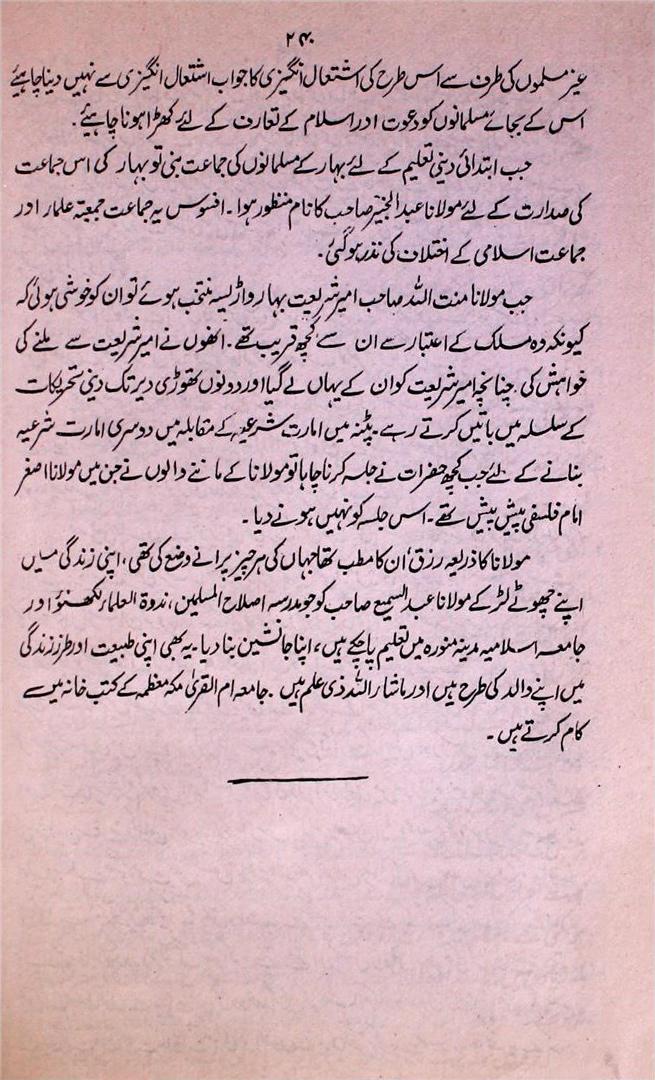 ۲۴۰
غیر مسلموں کی طرف سے اس طرح کی اشتعال انگیزی کا جواب اشتعال انگیزی سے نہیں دینا چاہیئے
اس کے بجائے مسلمانوں کو دعوت اور اسلام کے تعارف کے لئے کھڑا ہونا چاہیئے۔
جب ابتدائی دینی تعلیم کے لئے بہار کے مسلمانوں کی جماعت بنی تو بہار کی اس جماعت
کی صدارت کے لئے مولانا عبدالخبیر صاحب کا نام منظور ہوا۔ افسوس یہ جماعت جمعیۃ علماء اور
جماعت اسلامی کے اختلاف کی نذر ہوگئی۔
جب مولانا منت اللہ صاحب امیر شریعت بہار و اڑیسہ منتخب ہوئے تو ان کو خوشی ہوئی کہ
کیونکہ وہ مسلک کے اعتبار سے ان سے کچھ قریب تھے۔ انھوں نے امیر شریعت سے ملنے کی
خواہش کی، چنانچہ امیر شریعت کو ان کے یہاں لے گیا اور دونوں تھوڑی دیر تک دینی تحریکات
کے سلسلہ میں باتیں کرتے رہے۔ پٹنہ میں امارت شرعیہ کے مقابلہ میں دوسری امارت شرعیہ
بنانے کے لئے جب کچھ حضرات نے جلسہ کرنا چاہا تو مولانا کے ماننے والوں نے جن میں مولانا اصغر
امام فلسفی پیش پیش تھے۔ اس جلسہ کو نہیں ہونے دیا۔
مولانا کا ذریعہ رزق، ان کا مطب تھا جہاں کی ہر چیز پرانے وضع کی تھی، اپنی زندگی میں
اپنے چھوٹے لڑکے مولانا عبدالسمیع صاحب کو جو مدرسہ اصلاح المسلمین، ندوۃ العلماء لکھنؤ اور
جامعہ اسلامیہ مدینہ منورہ میں تعلیم پاچکے ہیں، اپنا جانشین بنا دیا۔ یہ بھی اپنی طبیعت اور طرز زندگی
میں اپنے والد کی طرح ہیں اور ماشاء اللہ ذی علم ہیں۔ جامعہ ام القریٰ مکہ معظمہ کے کتب خانہ میں
کام کرتے ہیں۔